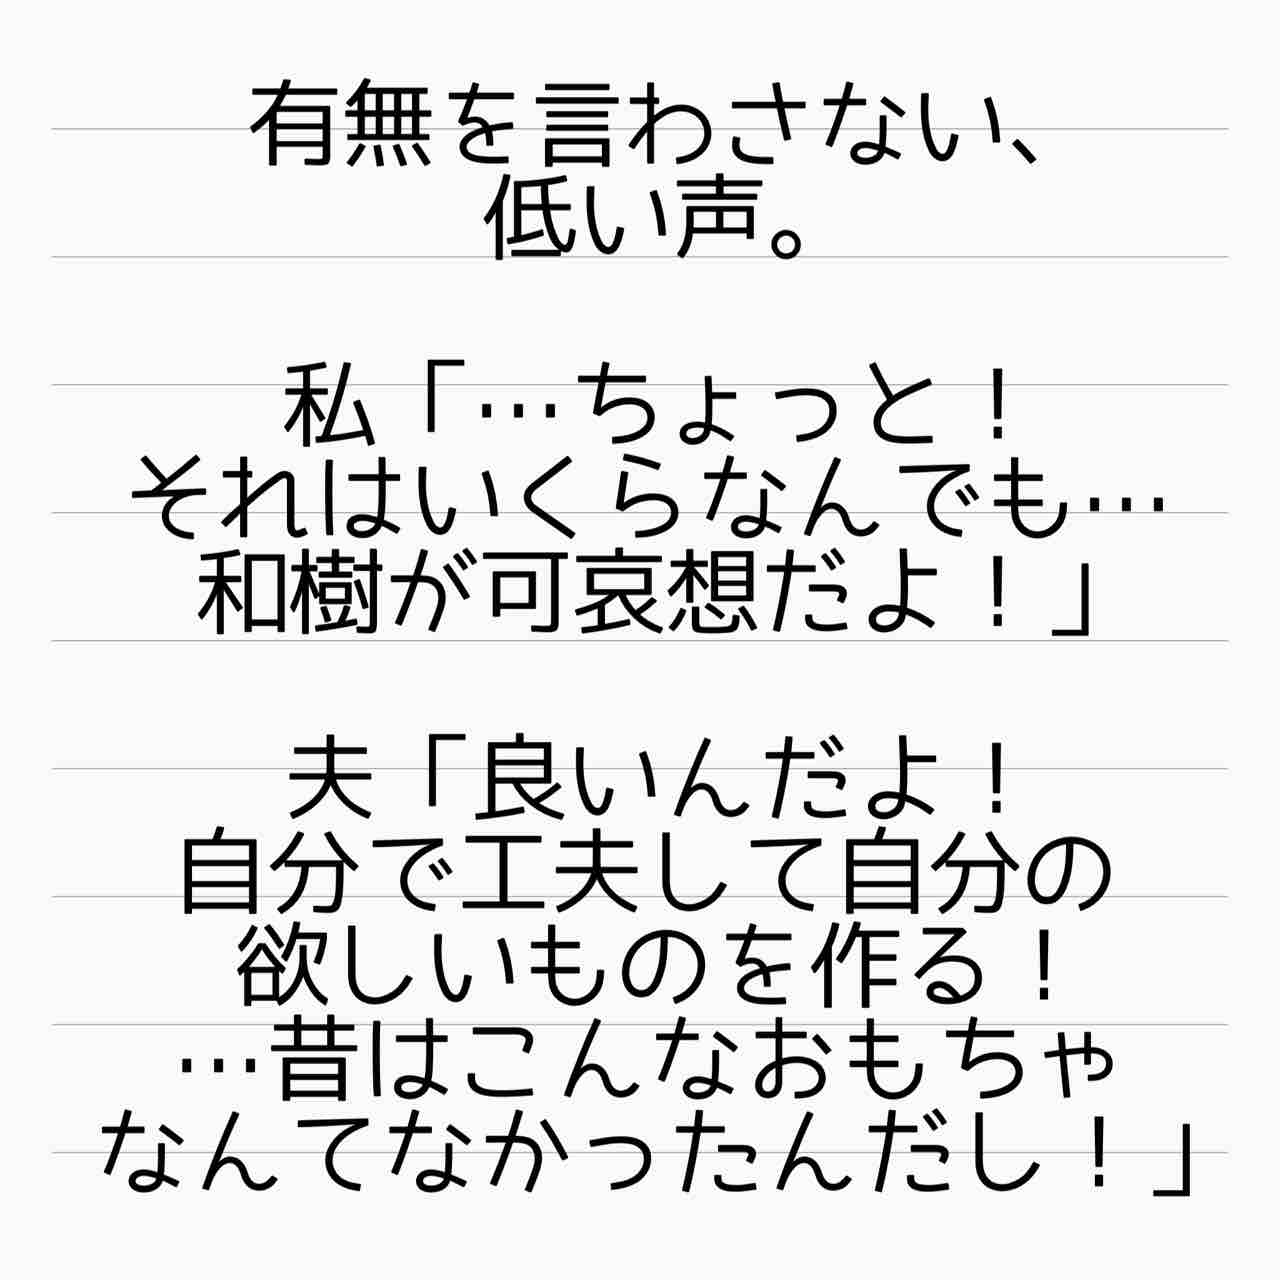 有無を言わさない、
低い声。
私「…ちょっと！
それはいくらなんでも…
和樹が可哀想だよ！」
夫「良いんだよ！
自分で工夫して自分の
欲しいものを作る！
…昔はこんなおもちゃ
なんてなかったんだし！」